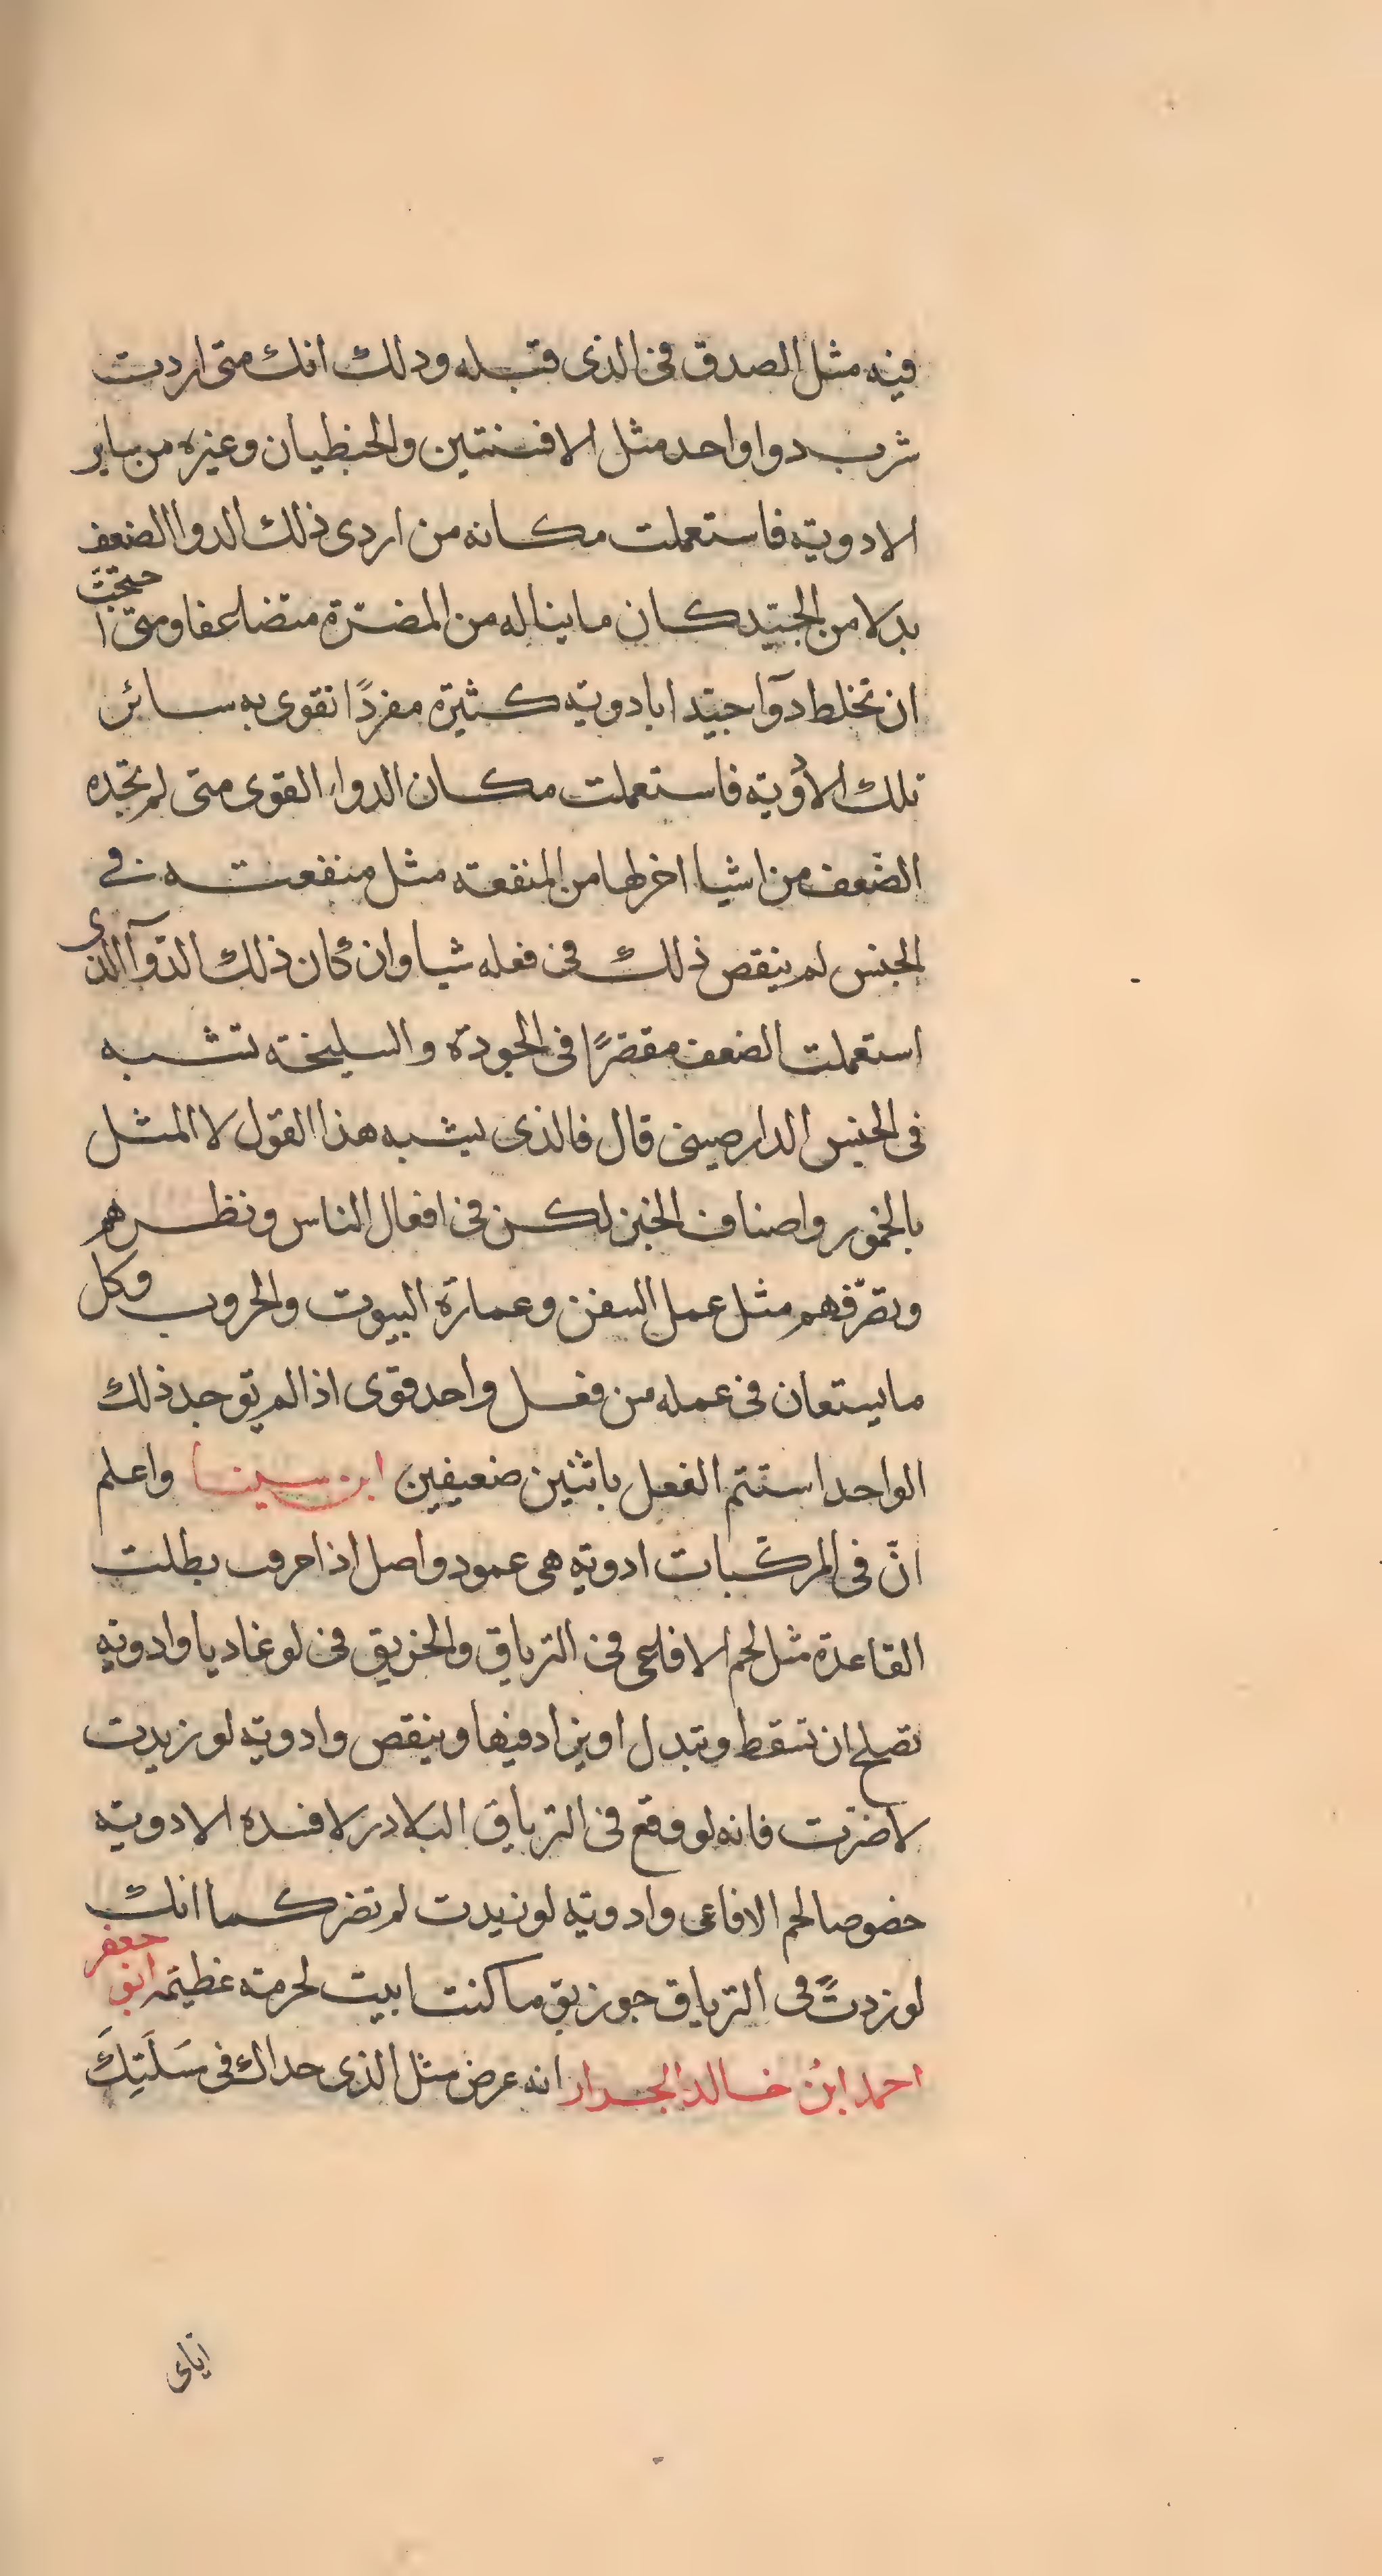 فيه مثل الصدق في الذى قبله ودلك انك متى اردت
شرب دوا واحد مثل الافسنتين والجنطيان وغيره من ساير
الادوية فاستعملت مكانه من اردى ذلك الدوا الضعف
بدلا من الجيّد كان ما يناله من المضرّة متضاعفا ومتى احتجت
ان تخلط دوآ جيّدا بادوية كثيرة مفردًا تقوى به سائر
تلك الأدوية فاستعملت مكان الدواء القوى متى لم تجده
الضّعف من اشيا اخر لها من المنفعة مثل منفعته في
الجنس لم ينقص ذلك في فعله شيا وان كان ذلك الدّوآ الذى
استعملت الضعف مقصّرًا في الجودة والسليخة تشبه
في الجنس الدارصينى قال فالذى يشبه هذا القول لا المثل
بالخمور واصناف الخبز لكن في افعال الناس ونظرهم
وتصرّفهم مثل عمل السفن وعمارة البيوت والحروب وكل
ما يستعان في عمله من فعل واحد قوى اذا لم توجد ذلك
الواحد استتم الفعل باثنين ضعيفين ابن سينا واعلم
انّ في المركّبات ادوية هى عمود واصل اذا حرف بطلت
القاعدة مثل لحم الافاعى في الترياق والخربق في لوغاديا وادوية
تصلح ان تسقط وتبدل او يزاد فيها وينقص وادوية لو زيدت
لاضرّت فانه لو وقع في الترياق البلادر لافسده الادوية
خصوصا لحم الافاعى وادوية لو زيدت لم تضر كما انك
لو زدتّ في الترياق جوزبق ما كنت ابيت لحرمة عظيمة ابو جعفر
احمد ابنُ خالد الجرار انه عرض مثل الذى حداك في سَلَتِكَ
اياى